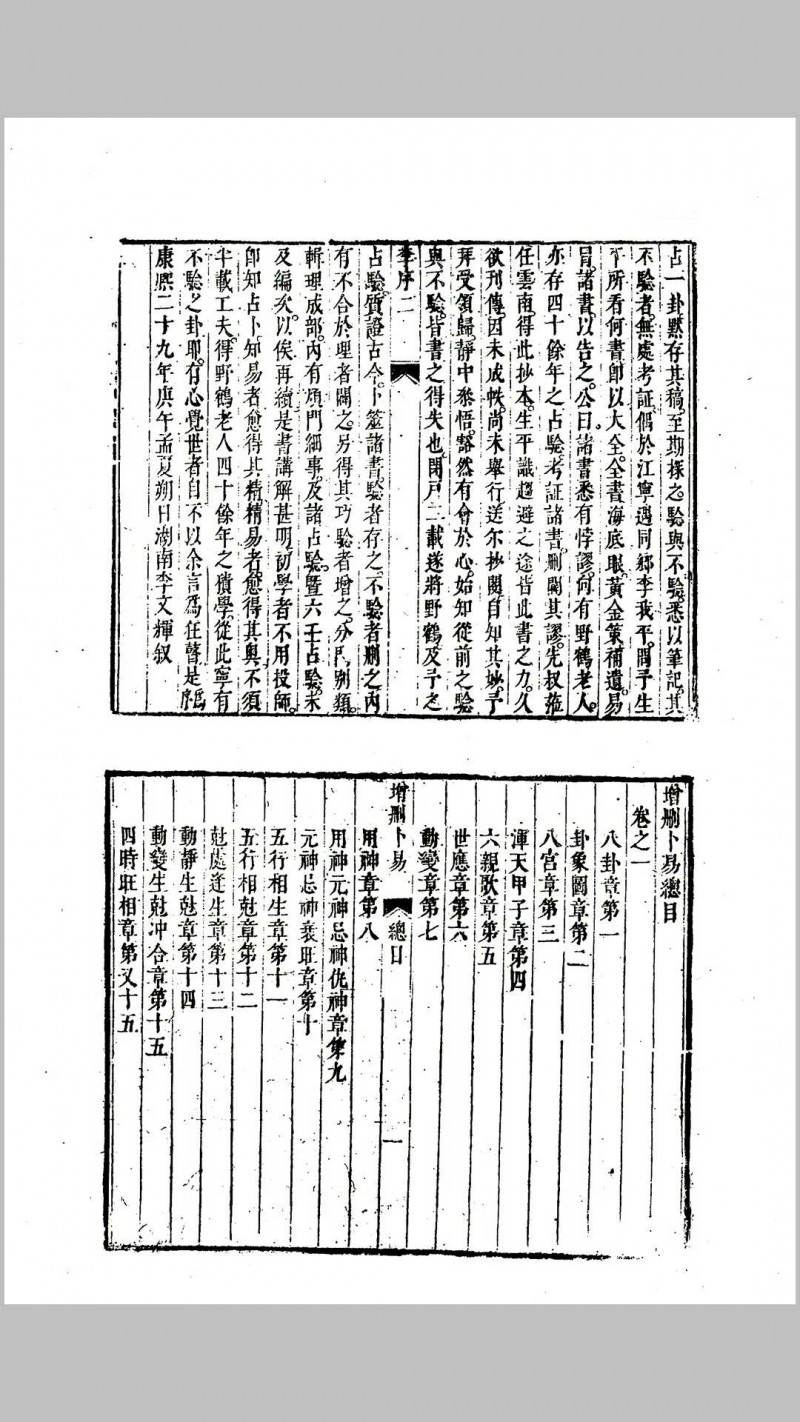 占一卦默存其稿至期探之驗與不驗悉以筆記其
不驗者無處考証偶於江寧遇同鄉李我平問予生
平所看何書卽以大全全書海底眼黃金策補遺易
冒諸書以告之公曰諸書悉有悖謬何有野鶴老人
亦存四十餘年之占驗考証諸書删闢其謬先叔蒞
任雲南得此抄本生平識趨避之途皆此書之力久
欲刊傳因未成帙尚未舉行送尔抄閱自知其妙予
拜受領歸靜中叅悟豁然有會於心始知從前之驗
與不驗皆書之得失也閉戸三載遂將野鶴及予之
李序二
占驗質證古今卜筮諸書驗者存之不驗者删之內
有不合於理者闢之另得其巧驗者增之分門别類
輯理成部內有煩門細事及諸占驗曁六壬占驗未
及編次以俟再續是書講解甚明初學者不用投師
卽知占卜知易者愈得其精精易者愈得其奧不須
半載工夫得野鶴老人四十餘年之積學從此寧有
不驗之卦耶有心覺世者自不以余言爲狂瞽是爲序
康熙二十九年庚午孟夏朔日湖南李文輝叙
增删卜易總目
卷之一
八卦章第一
卦象圖章第二
八宮章第三
渾天甲子章第四
六親歌章第五
世應章第六
動變章第七
增删卜易 總目 一
用神章第八
用神元神忌神仇神章第九
元神忌神衰旺章第十
五行相生章第十一
五行相尅章第十二
尅處逢生章第十三
動靜生尅章第十四
動變生尅冲合章第十五
四時旺相章第又十五